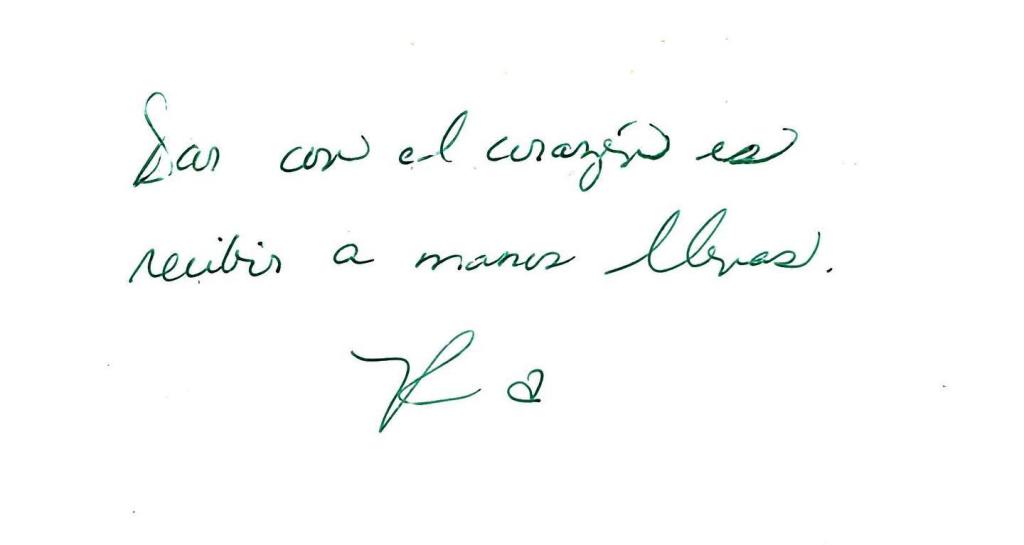 Dar con el corazón es
recibir a manos llenas.